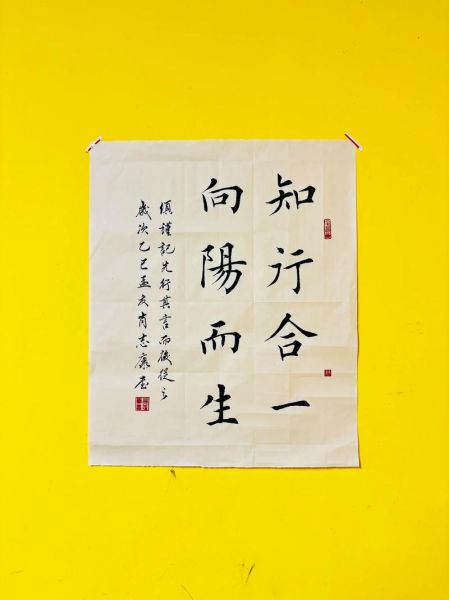 知行合一
向陽而生
須謹記先行其言而後從之
歲次乙巳孟夏肖志康書